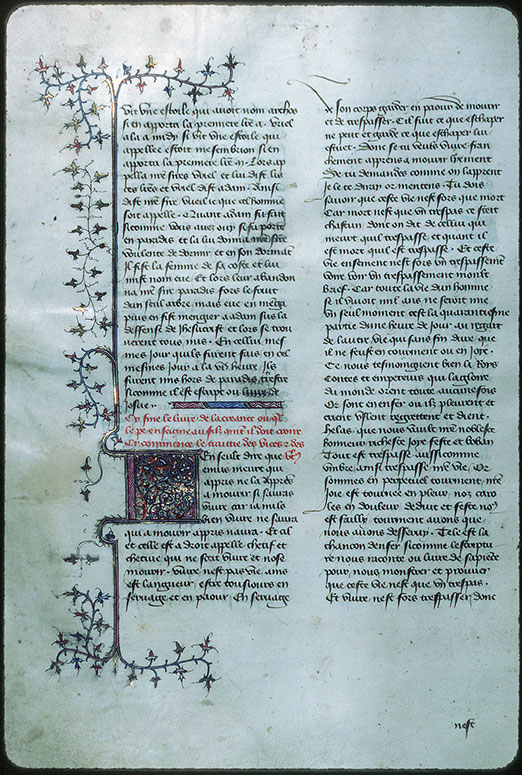 vit vne estoille qui auoit nom archos
si en apporta la premiere lre a. Vriel
ala a midy si vit vne estoille qui
appellee estoit mesembrion si en
apporta la premiere lre m. Lors ap
pella nre sires Vriel et lui dist lis
tes lres et vriel dist adam. Ainsi
dist nre sire vriel ie que cel homme
soit appelle. Quant adam fu fait
si comme vous auez ouy si fu porte
en paradis et la lui donna nre sire
voulente de dormir et en son dormant
Il fist la femme de sa coste et lui
mist nom eue. Et lors leur abandon
na nre sire paradis fors le fruit
dun seul arbre mais eue en menga
puis en fist mengier a adam sus la
deffense de Jhesucrist et lors se trou
uerent tous nus. En cellui mes
mes Jour quilz furent fais en cel
mesmes Jour a la vie heure Ilz
furent mis hors de paradis terestre
si comme il est escript ou liure de
Josue.
Cy fine le liure de la creance ou que
le pere enseigne au filz qui sont contre
Cy commence le traittie des vices et des
En seult dire que vers
enuis meurt qui
appris ne la Appren
a mourir si sauras
viure car ia nulz
bien viure ne saura
qui a mourir appris naura. Et cil
et celle est a droit appelle chetif et
chetiue qui ne scet viure et nose
mourir. viure nest pas vie. ains
est langueur estre tousiours en
seruage et en paour. En seruage
de son corps garder en paour de mourir
et de trespasser. Cil fuit ce que eschaper
ne peut et garde ce que eschaper lui
estuet. Donc se tu veulx viure fran
chement apprens a mourir liement
Se tu demandes comme on lapprent
Je le te diray or mentens. Tu dois
sauoir que ceste vie nest fors que mort
Car mort nest que vn trespas ce scet
chascun dont on dit de cellui qui
meurt quil trespasse. et quant il
est mort quil est trespasse. Et ceste
vie ensement nest fors vn trespassement
voire bien vn trespassement moult
brief. Car toute la vie dun homme
se il viuoit mil ans ne seroit mie
vn seul moment cest la quarantisme
partie dune heure de Jour. au regart
de lautre vie qui sans fin dure. que
il ne soit en tourment ou en Joye.
Ce nous tesmoignent bien la Roys
Contes et empereurs qui la gloire
du monde orent tout aucunesfois
Or sont en enfer ou ilz pleurent et
crient hurlent regrettent et dient.
helas que nous vault nre noblesse
honneur richesse Joye feste et boban
Tout est trespasse aussi comme
vmbre. ainsi trespasse nre vie. Or
sommes en perpetuel tourment. nre
Joie est tournee en pleur. noz caro
les en douleur deduit et festes noz
est failly tourment auons que
nous auons desseruy. Tele est la
chancon denfer si comme lescriptu
re nous raconte ou liure de sapience
pour nous monstrer et prouuer
que ceste vie nest que vn trespas.
Et viure nest fors trespasser donc
nest